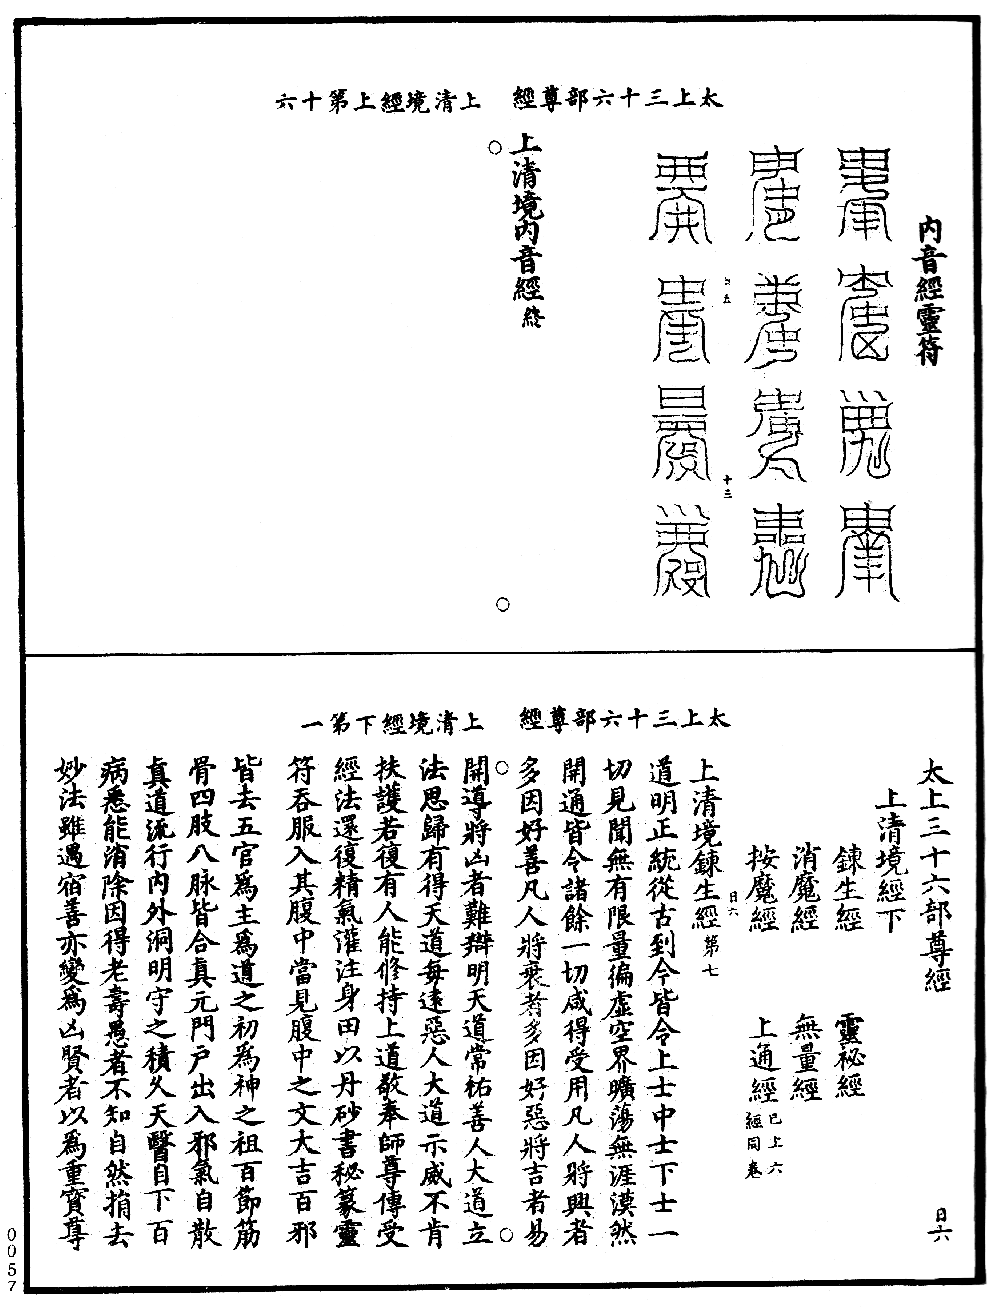 太上三十六部尊經　上清境經上第十六
內音經靈符
上清境內音經終
太上三十六部尊經　上清境經下第一
太上三十六部尊經
上清境經下
鍊生經　靈秘經
消魔經　無量經
按魔經　上通經已上六經同卷
上清境鍊生經第七
道明正統從古到今皆令上士中士下士一
切見聞無有限量徧虛空界曠蕩無涯漠然
開通皆令諸餘一切咸得受用凡人將興者
多因好善凡人將衰者多因好惡將吉者易
開導將凶者難辯明天道常祐善人大道立
法思歸有得天道每遠惡人大道示威不肯
扶護若復有人能修持上道敬奉師尊傳受
經法還復精氣灌注身田以丹砂書秘篆靈
符吞服入其腹中當見腹中之文大吉百邪
皆去五官爲主爲道之初爲神之祖百節筋
骨四肢八脉皆合真元門戶出入邪氣自散
真道流行內外洞明守之積久天醫自下百
病悉能消除因得老壽愚者不知自然捐去
妙法雖遇宿善亦變爲凶賢者以爲重寶尊
0057